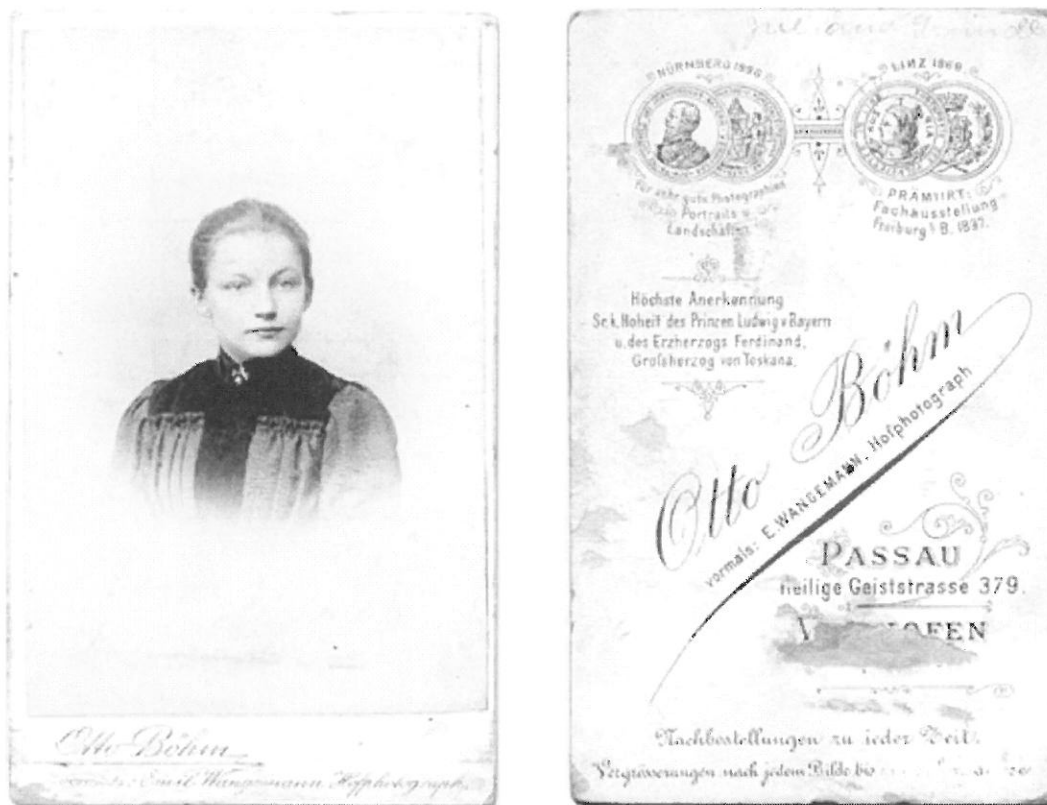 Otto Böhm
Emil Wangemann Hofphotograph.
NÜRNBERG 1896
LINZ 1869
Für sehr gute Photographien
Portraits u.
Landschaften.
PRÄMIIRT:
Fachausstellung
Freiburg i. B. 1897.
Höchste Anerkennung
Sr. k. Hoheit des Prinzen Ludwig v Bayern
u. des Erzherzogs Ferdinand,
Grofsherzog von Toskana.
Otto Böhm
vormals: E. WANGEMANN, Hofphotograph
PASSAU
heilige Geiststrasse 379.
Nachbestellungen zu jeder Zeit.
Vergrösserungen nach jedem Bilde bis